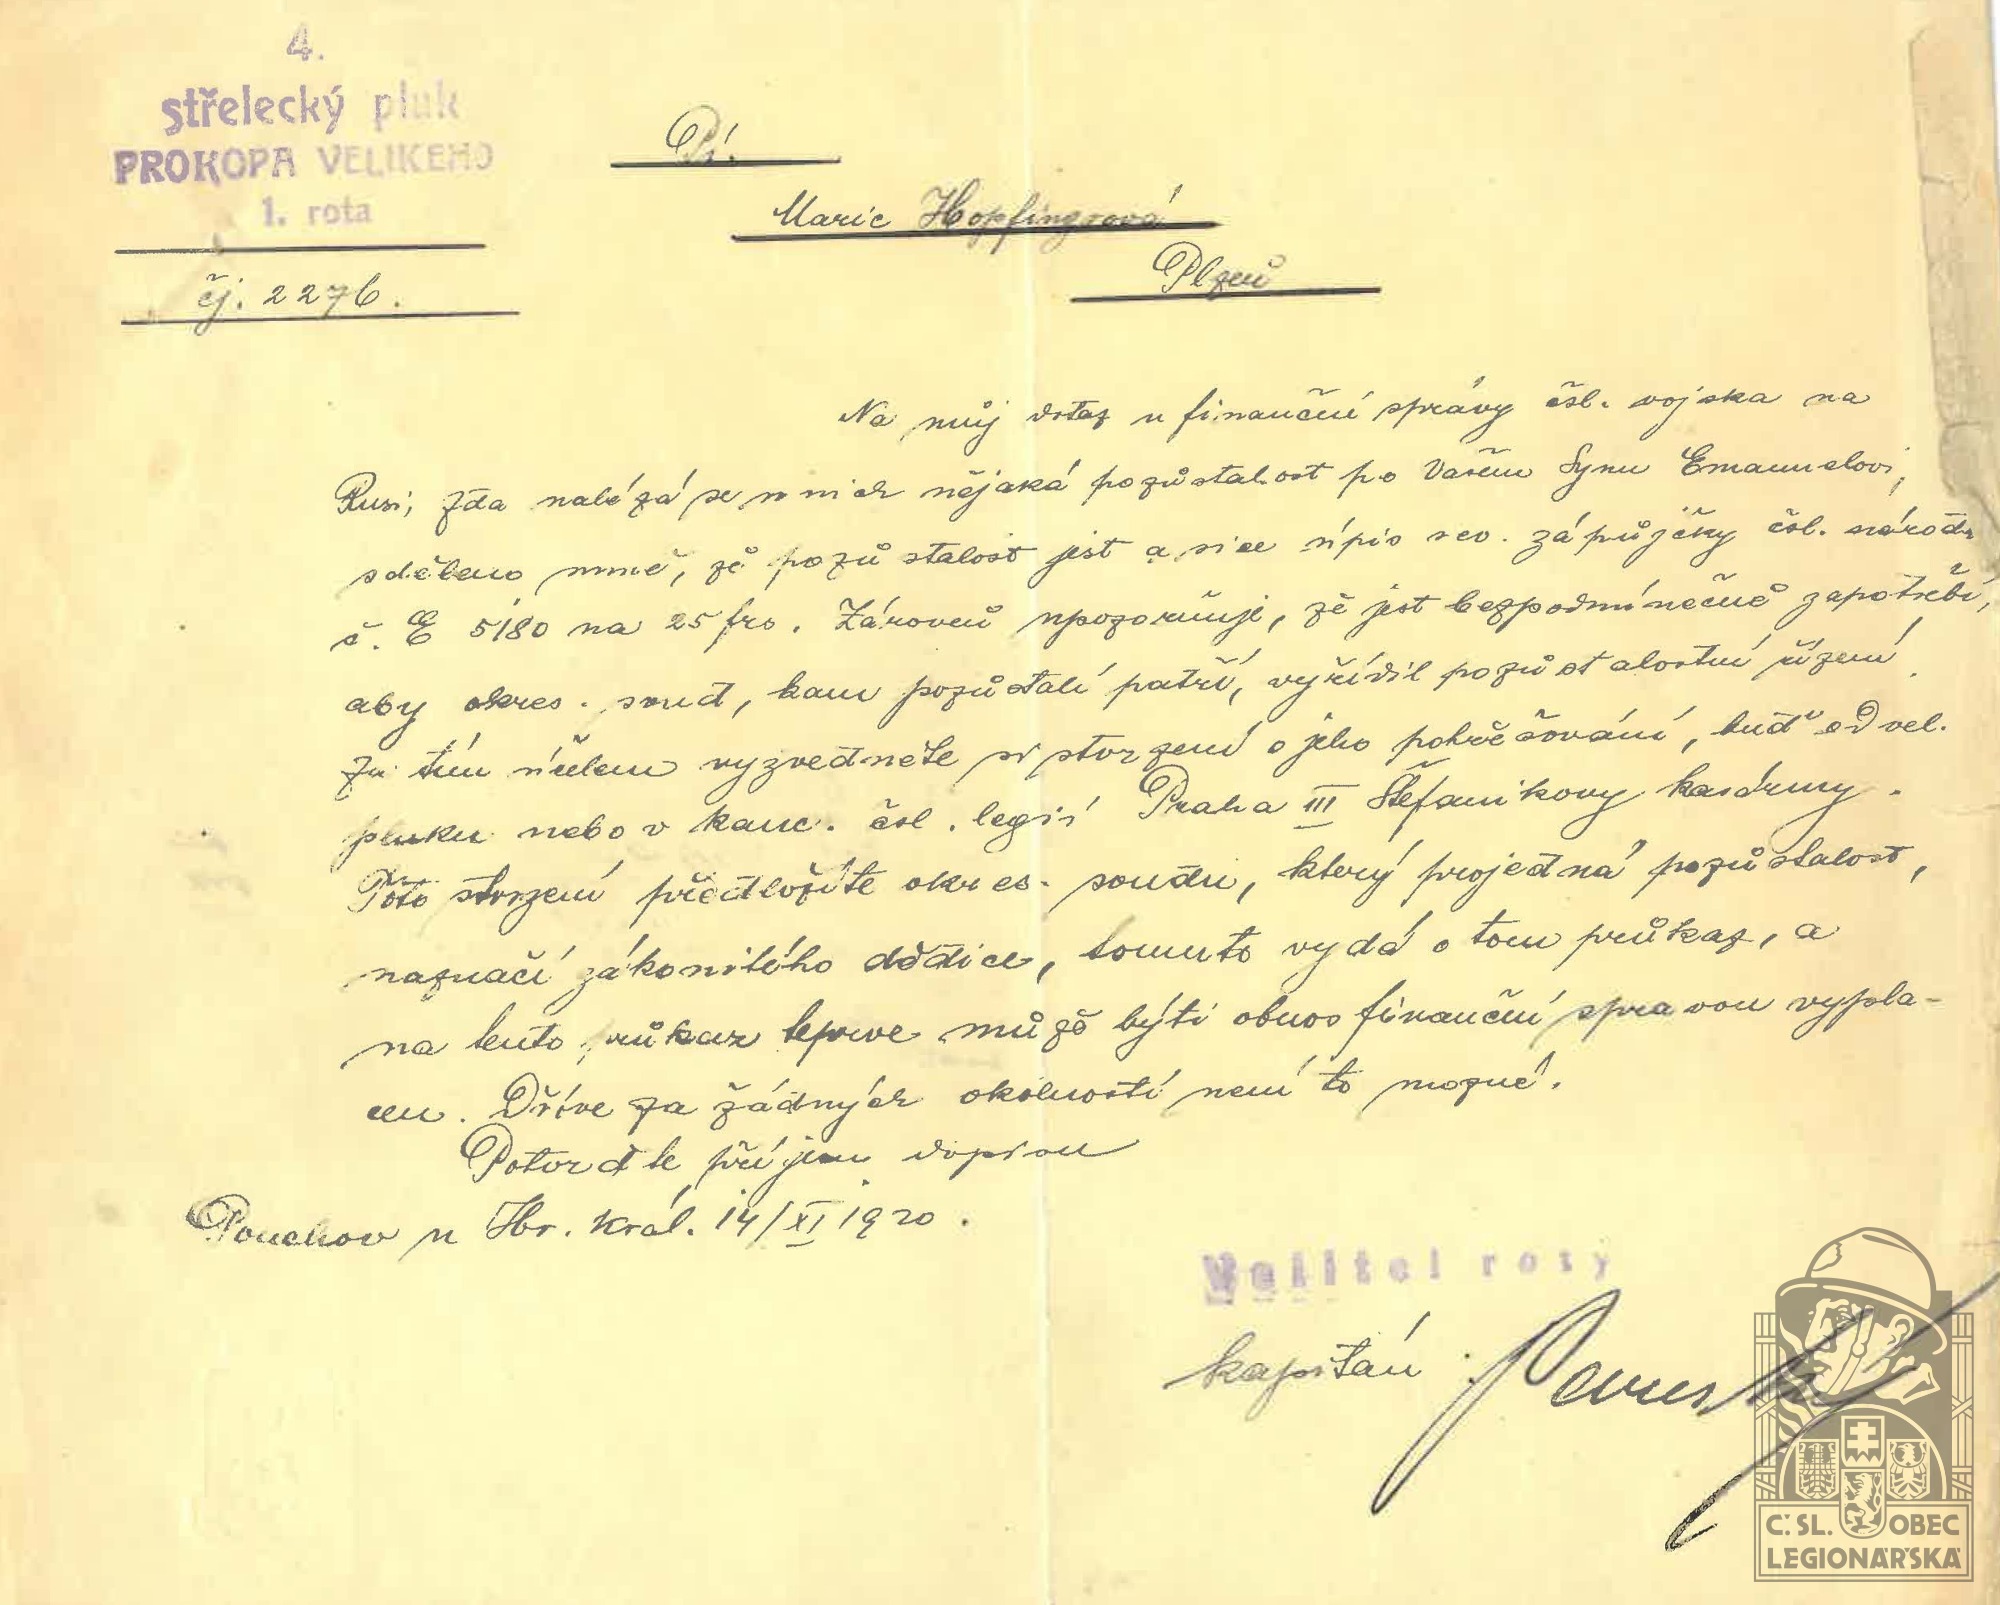 4.
střelecký pluk
PROKOPA VELIKEHO
1. rota
čj. 2276.
Pí.
Marie Hopfingrová
Plzeň
Na můj dotaz u finanční správy čsl. vojska na
Rusi, zda nalézá se u nich nějaká pozůstalost po Vašem synu Emanuelovi,
sděleno mně, že pozůstalost jest a sice úpis rev. zápůjčky čsl. národn
č. E 5180 na 25 frs. Zároveň upozorňuji, že jest bezpodmínečně zapotřebí,
aby okres. soud, kam pozůstalí patří, vyřídil pozůstalostní řízení.
Za tím účelem vyzvedněte si stvrzení o jeho pohřešování, buď od vel.
pluku nebo v kanc. čsl. legií Praha III Štefanikovy kasárny.
Toto stvrzení předložíte okres. soudu, který projedná pozůstalost,
naznačí zákonitého dědice, tomuto vydá o tom průkaz, a
na tento průkaz teprve může býti obnos finanční spravou vypla-
cen. Dříve za žádných okolností není to možné.
Potvrďte příjem dopisu
Pouchov u Hr. Král. 14/XI 1920.
Velitel roty
kapitán
Č.SL. OBEC
LEGIONÁŘSKÁ